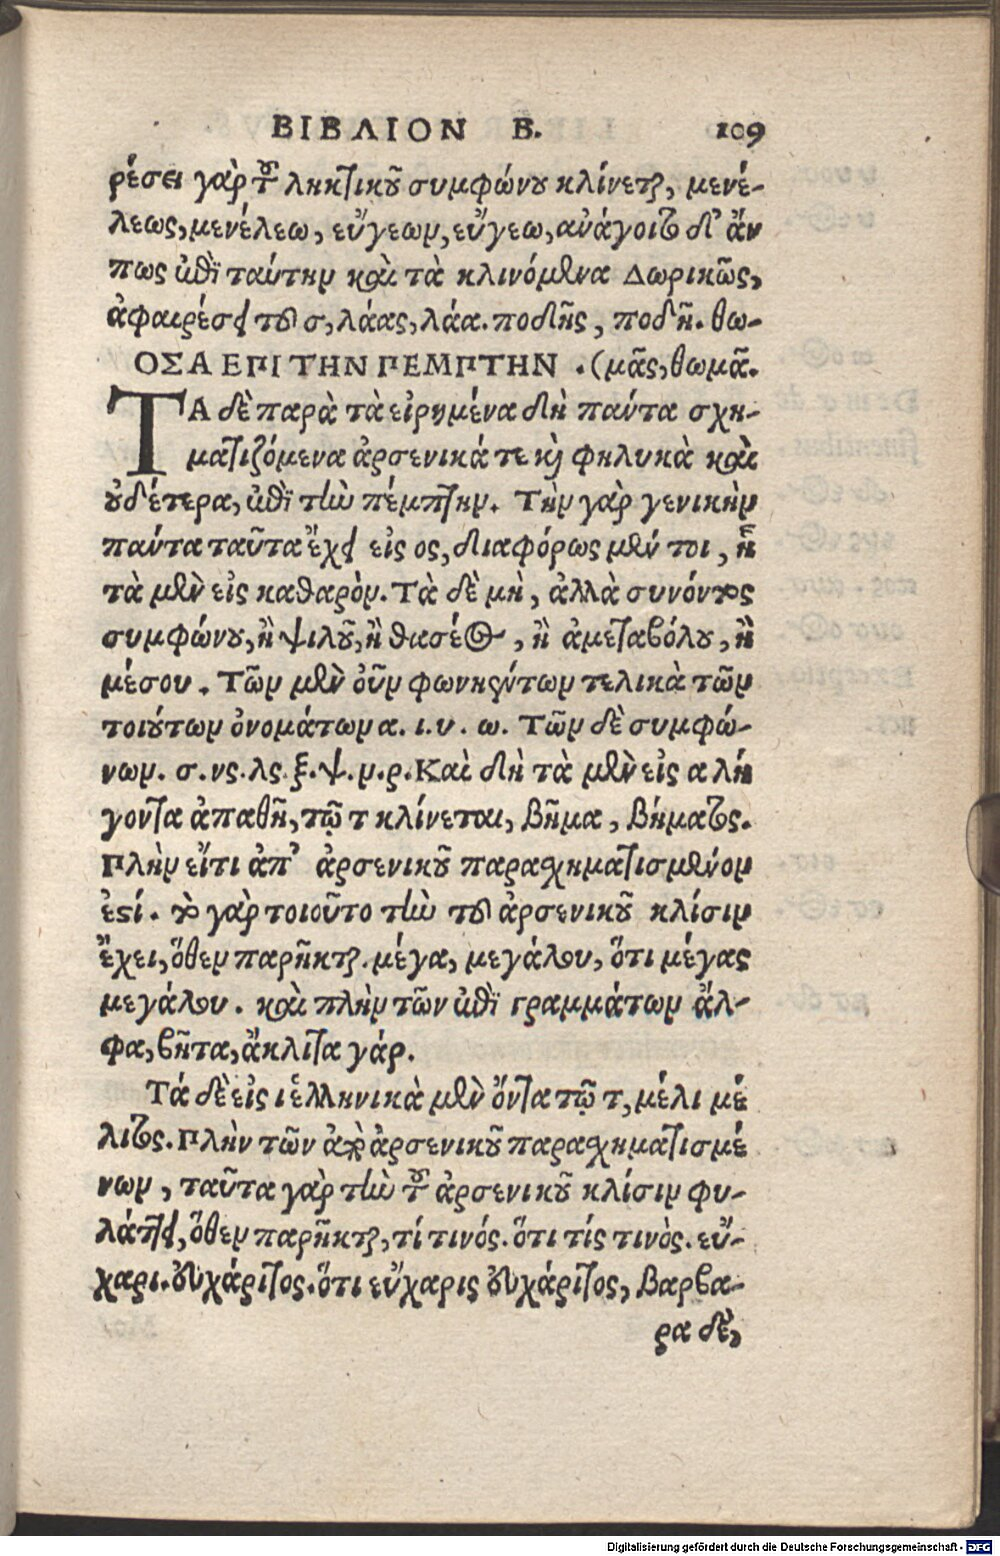 ΒΙΒΛΙΟΝ Β. 109
ρέσει γὰρ τοῦ ληκτικοῦ συμφώνου κλίνεται, μενέ-
λεως, μενέλεω, εὔγεων, εὔγεω, ἀνάγοιτο δ' ἄν
πως ἐπὶ ταύτην καὶ τὰ κλινόμενα Δωρικῶς,
ἀφαιρέσει τοῦ σ, λάας, λάα. ποδῆς, ποδῆ. θω-
ΟΣΑ ΕΠΙ ΤΗΝ ΠΕΜΠΤΗΝ . (μᾶς, θωμᾶ.
ΤΑ δὲ παρὰ τὰ εἰρημένα δὴ πάντα σχη-
ματιζόμενα ἀρσενικά τε καὶ θηλυκὰ καὶ
οὐδέτερα, ἐπὶ τὴν πέμπτην. Τὴν γὰρ γενικὴν
πάντα ταῦτα ἔχει εἰς ος, διαφόρως μέν τοι, ἢ
τὰ μὲν εἰς καθαρὸν. Τὰ δὲ μὴ, ἀλλὰ συνόντος
συμφώνου, ἢ ψιλοῦ, ἢ δασέος, ἢ ἀμεταβόλου, ἢ
μέσου. Τῶν μὲν οὖν φωνηέντων τελικὰ τῶν
τοιούτων ὀνομάτων α. ι. υ. ω. Τῶν δὲ συμφώ-
νων. σ. νς. λς. ξ. ψ. ν. ρ. Καὶ δὴ τὰ μὲν εἰς α λή
γοντα ἀπαθῆ, τῷ τ κλίνεται, βῆμα, βήματος.
Πλὴν εἴτι ἀπ' ἀρσενικοῦ παρασχηματισμένον
ἐστί. τὸ γὰρ τοιοῦτο τὴν τοῦ ἀρσενικοῦ κλίσιν
ἔχει, ὅθεν παρῆκται. μέγα, μεγάλου, ὅτι μέγας
μεγάλου. καὶ πλὴν τῶν ἐπὶ γραμμάτων ἄλ-
φα, βῆτα, ἄκλιτα γάρ.
Τά δὲ εἰς ι ἑλληνικὰ μὲν ὄντα τῷ τ, μέλι μέ
λιτος. Πλὴν τῶν ἀπὸ ἀρσενικοῦ παρασχηματισμέ
νων, ταῦτα γὰρ τὴν τοῦ ἀρσενικοῦ κλίσιν φυ-
λάττει, ὅθεν παρῆκται, τί τινός. ὅτι τίς τινὸς. εὔ-
χαρι. εὐχάριτος. ὅτι εὔχαρις εὐχάριτος, βαρβα-
ρα δὲ,
Digitalisierung gefördert durch die Deutsche Forschungsgemeinschaft - DFG